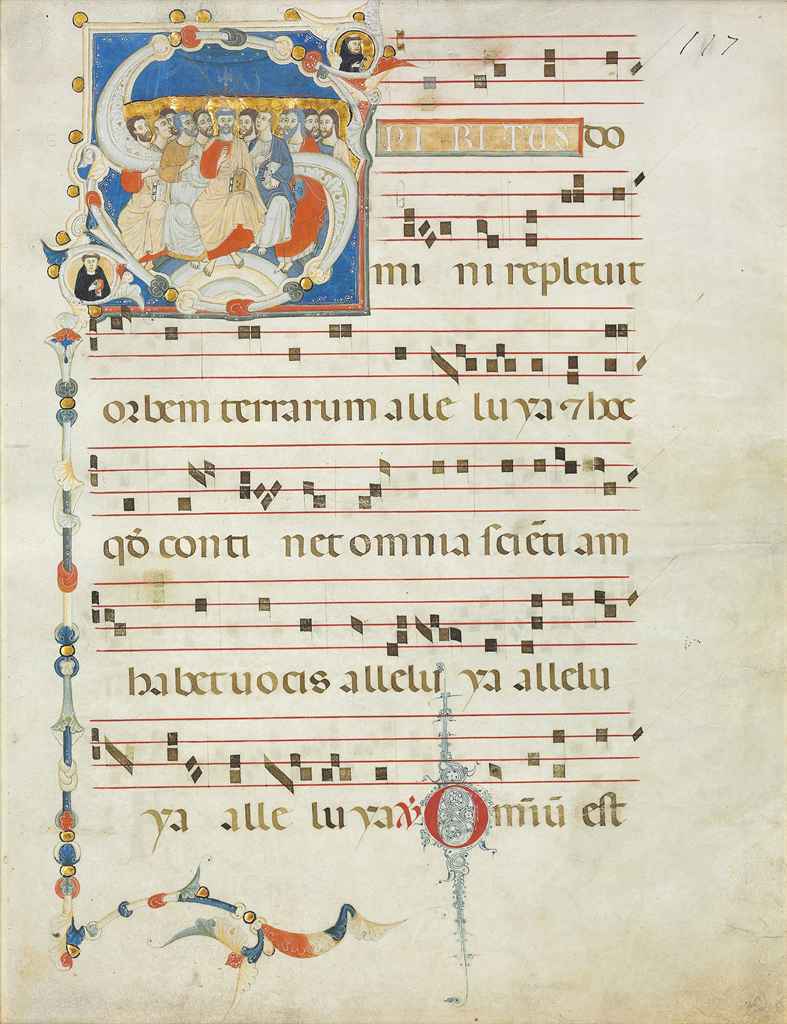 117
SPIRITUS do
mi ni repleuit
orbem terrarum alle lu ya ⁊ hoc
qđ conti net omnia sciẽti am
habet uocis allelu ya allelu
ya alle lu ya Omĩũ est